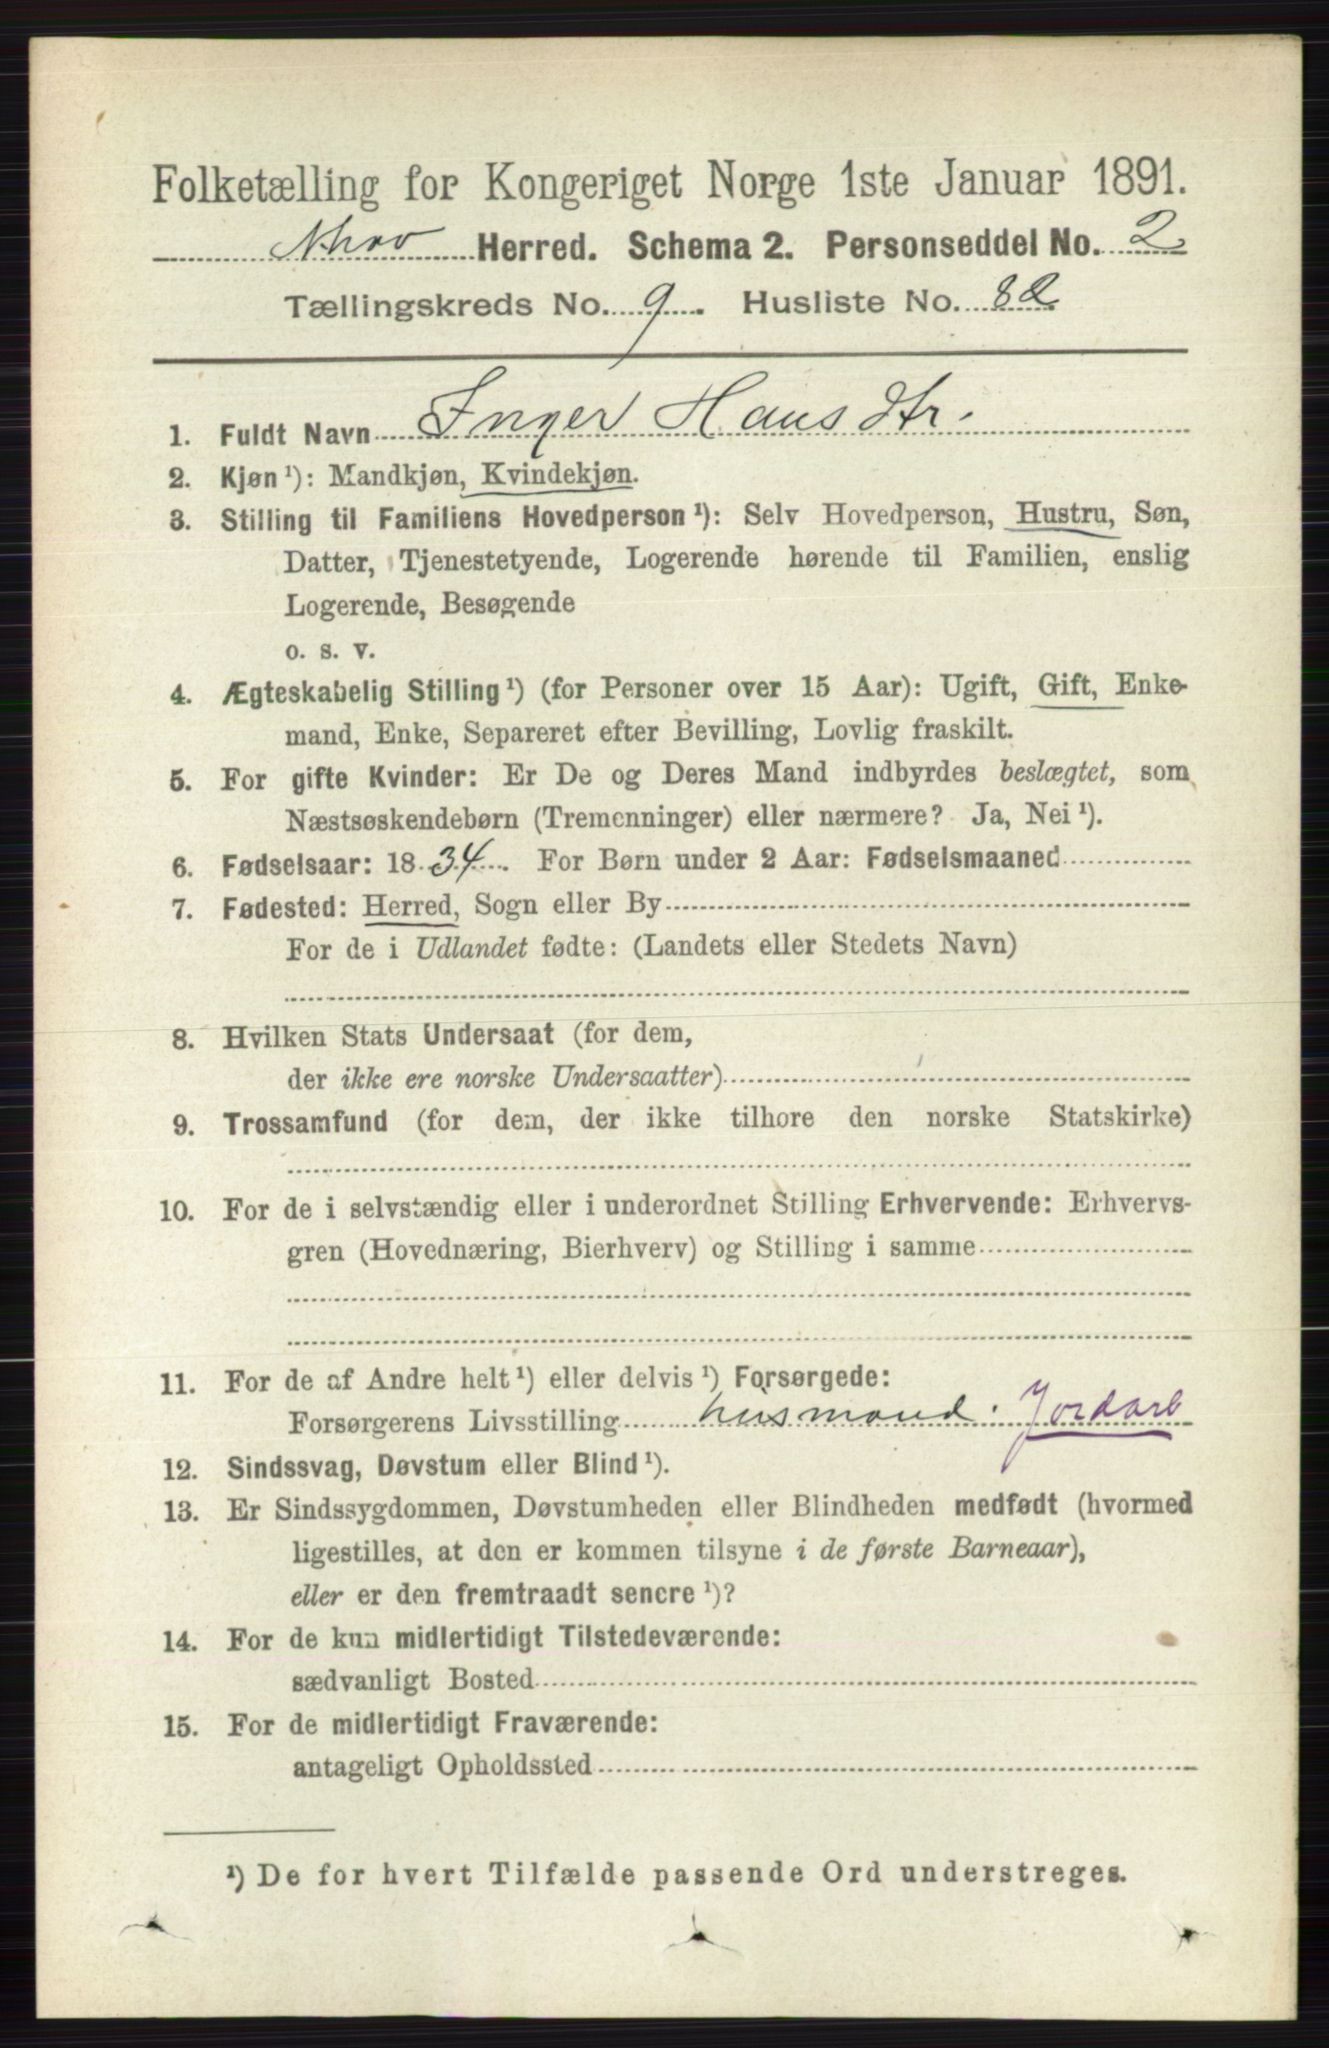 Folketælling for Kongeriget Norge 1ste Januar 1891.
Herred. Schema 2. Personseddel No. 2
Tællingskreds No. 9. Husliste No. 82
1. Fuldt Navn Inger Hansdtr.
2. Kjøn ¹): Mandkjøn, Kvindekjøn.
3. Stilling til Familiens Hovedperson ¹): Selv Hovedperson, Hustru, Søn,
Datter, Tjenestetyende, Logerende hørende til Familien, enslig
Logerende, Besøgende
o. s. v.
4. Ægteskabelig Stilling ¹) (for Personer over 15 Aar): Ugift, Gift, Enke-
mand, Enke, Separeret efter Bevilling, Lovlig fraskilt.
5. For gifte Kvinder: Er De og Deres Mand indbyrdes beslægtet, som
Næstsøskendebørn (Tremenninger) eller nærmere? Ja, Nei ¹).
6. Fødselsaar: 1834. For Børn under 2 Aar: Fødselsmaaned
7. Fødested: Herred, Sogn eller By
For de i Udlandet fødte: (Landets eller Stedets Navn)
8. Hvilken Stats Undersaat (for dem,
der ikke ere norske Undersaatter)
9. Trossamfund (for dem, der ikke tilhore den norske Statskirke)
10. For de i selvstændig eller i underordnet Stilling Erhvervende: Erhvervs-
gren (Hovednæring, Bierhverv) og Stilling i samme
11. For de af Andre helt ¹) eller delvis ¹) Forsørgede:
Forsørgerens Livsstilling husmand. Jordarb
12. Sindssvag, Døvstum eller Blind ¹).
13. Er Sindssygdommen, Døvstumheden eller Blindheden medfødt (hvormed
ligestilles, at den er kommen tilsyne i de første Barneaar),
eller er den fremtraadt senere ¹)?
14. For de kun midlertidigt Tilstedeværende:
sædvanligt Bosted
15. For de midlertidigt Fraværende:
antageligt Opholdssted
¹) De for hvert Tilfælde passende Ord understreges.